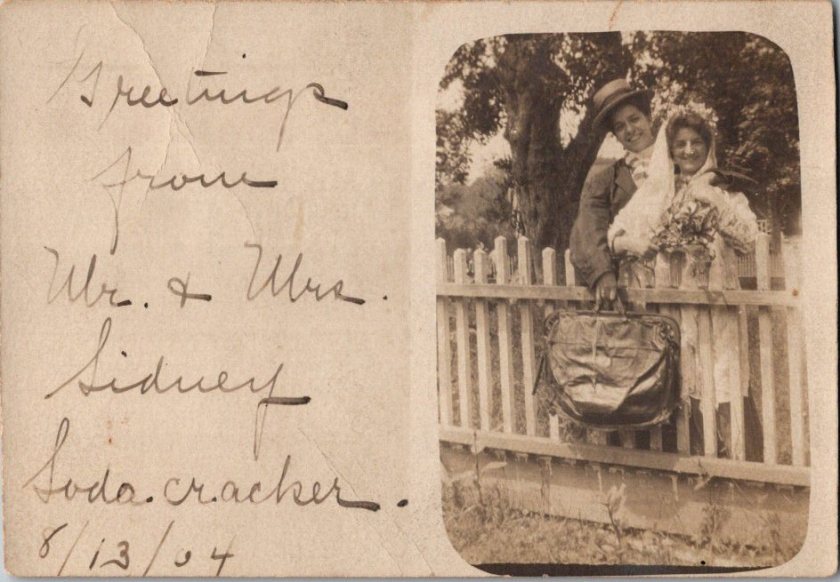 Greetings
from
Mr. & Mrs.
Sidney
Soda.cracker.
8/13/04